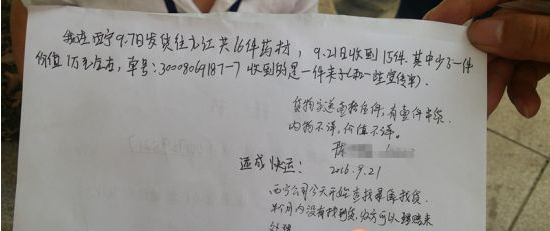 我在西宁9.7日发货往九江共16件药材，9.21日收到15件.其中少了一件
价值1万元左右，单号：30008069187-7 收到的是一件来子(和一些宣传单).
货物实送查找应件,有壹件串货.
内物不详,价值不详。
陈
速成快运：
2016.9.21
西宁公司今天开始查找串库找货.
半个月内没有找到货,收方可以理赔来
处理